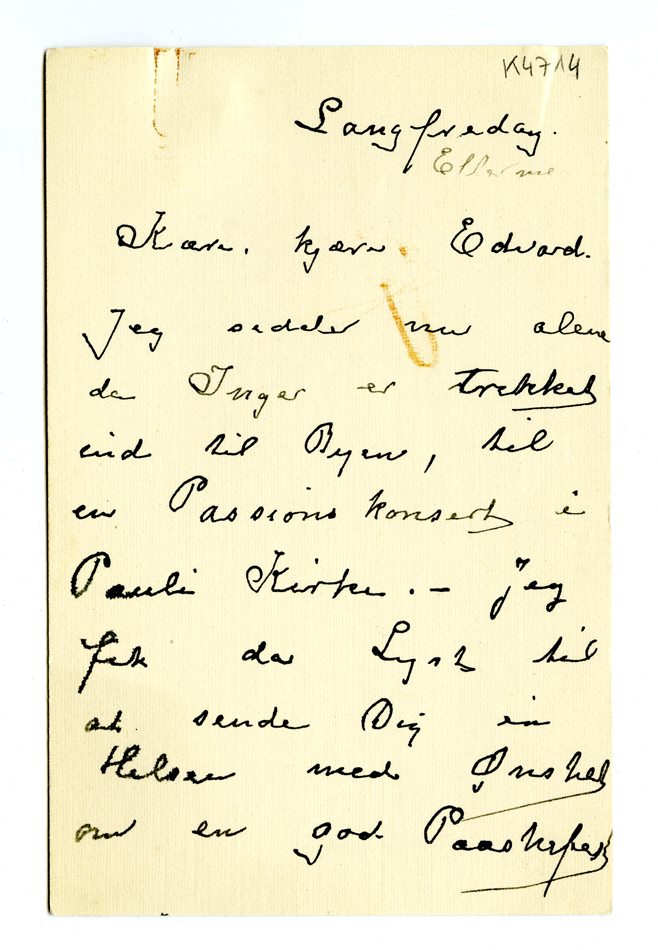 K4714
Langfredag.
Kære, kjære Edvard.
Jeg sidder nu alene
da Inger er trukket
ind til Byen, til
en Passions konsert i
Pauli Kirke. – Jeg
fik da Lyst til
at sende Dig en
Hilsen med Ønsket
om en god Paaskefest